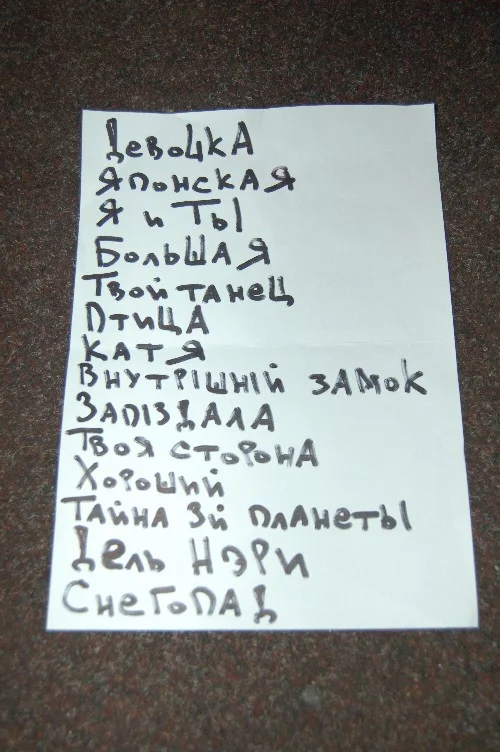 Девочка
Японская
Я и Ты
Большая
Твой танец
Птица
Катя
Внутрішній замок
Запіздала
Твоя сторона
Хороший
Тайна 3й планеты
Дель Нэри
Снегопад